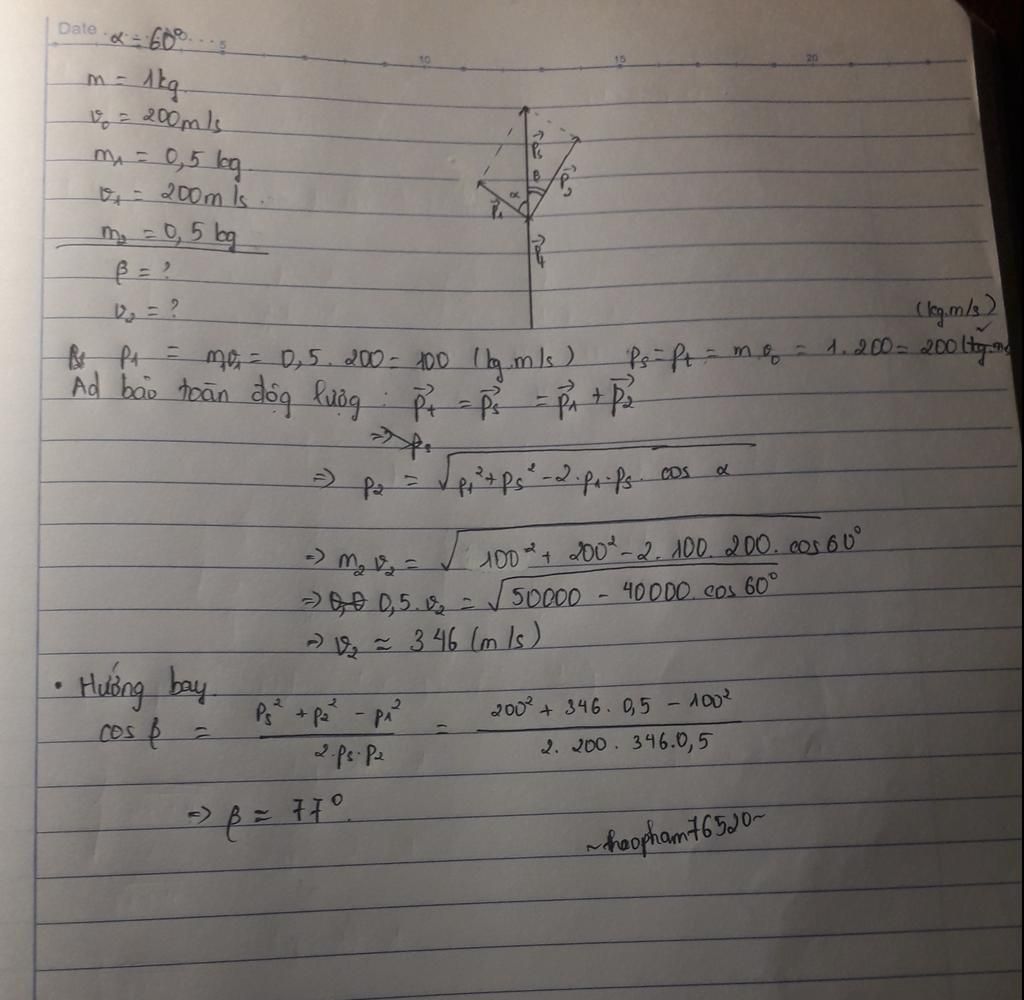 Date α = 60°
5 10 15 20
m = 1kg
v₀ = 200m/s
m₁ = 0,5 kg
v₁ = 200m/s.
m₂ = 0,5 kg
β = ?
v₂ = ?
p⃗s
β
α
p⃗₂
p⃗₁
p⃗t
(kg.m/s)
p₁ = m₁v₁ = 0,5 . 200 = 100 (kg.m/s) ps = pt = m v₀ = 1.200 = 200
Ad bảo toàn độg lượg : p⃗t = p⃗s = p⃗₁ + p⃗₂
⇒ p₂ = √(p₁² + ps² - 2.p₁.ps. cos α)
⇒ m₂ v₂ = √(100² + 200² - 2. 100. 200. cos 60°)
⇒ 0,5. v₂ = √(50000 - 40000. cos 60°)
⇒ v₂ ≈ 346 (m/s)
• Hướng bay.
cos β = (ps² + p₂² - p₁²) / (2.ps.p₂) = (200² + 346. 0,5 - 100²) / (2. 200. 346.0,5)
⇒ β ≈ 77°.
~thaopham76520~